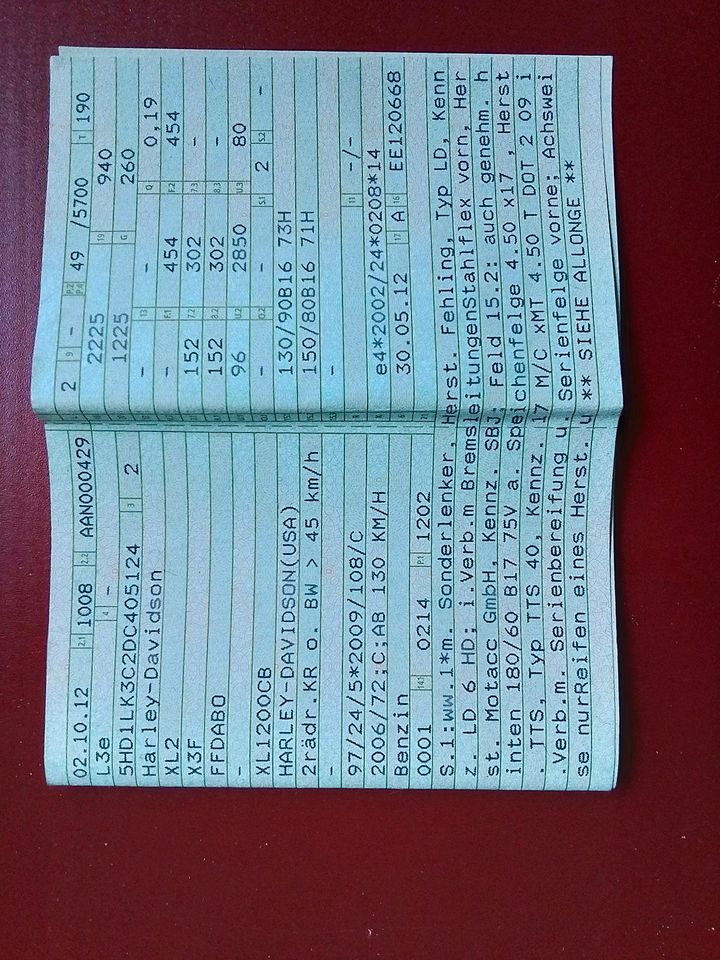 02.10.12 2.1 1008 2.2 AAN000429 2 9 - P.2 P.4 49 /5700 T 190
L3e 4 - 2225 19 940
5HD1LK3C2DC405124 3 2 1225 G 260
Harley-Davidson - 13 - Q 0,19
XL2 - F.1 454 F.2 454
X3F 152 7.2 302 7.3 -
FFDABO 152 8.2 302 8.3 -
- 96 U.2 2850 U.3 80
XL1200CB - O.2 - S.1 2 S.2 -
HARLEY-DAVIDSON(USA) 130/90B16 73H
2rädr.KR o. BW > 45 km/h 150/80B16 71H
- -
97/24/5*2009/108/C 11 -/-
2006/72;C;AB 130 KM/H e4*2002/24*0208*14
Benzin 30.05.12 17 A 16 EE120668
0001 14.1 0214 P.1 1202
S.1:ww.1*m. Sonderlenker, Herst. Fehling, Typ LD, Kenn
z. LD 6 HD; i.Verb.m BremsleitungenStahlflex vorn, Her
st. Motacc GmbH, Kennz. SBJ. Feld 15.2: auch genehm. h
inten 180/60 B17 75V a. Speichenfelge 4.50 x17 , Herst
. TTS, Typ TTS 40, Kennz. 17 M/C xMT 4.50 T DOT 2 09 i
.Verb.m. Serienbereifung u. Serienfelge vorne; Achswei
se nurReifen eines Herst. u ** SIEHE ALLONGE **